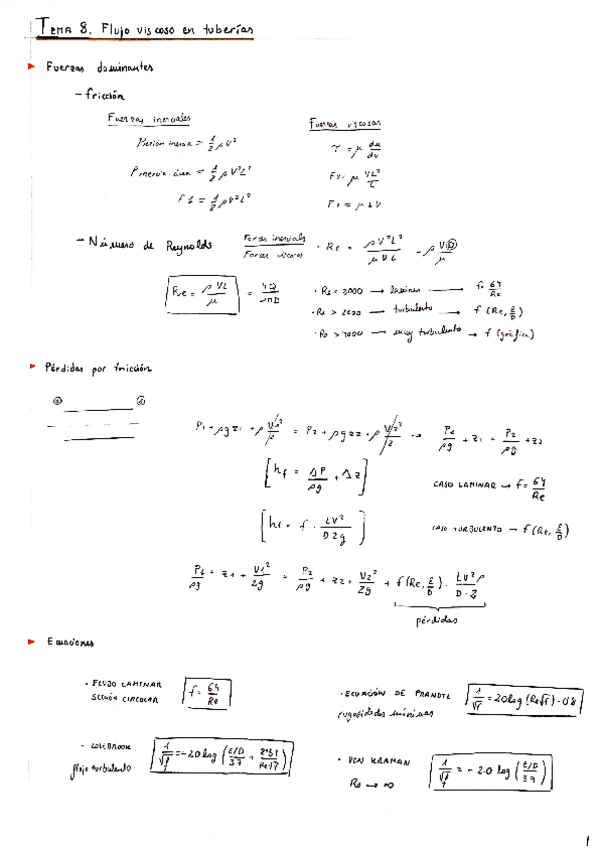 TEMA 8. Flujo viscoso en tuberías
Fuerzas dominantes
- fricción
Fuerzas inerciales
Fuerzas viscosas
Presión inercia = 1/2 ρV²
τ = μ du/dv
F inercia = 1/2 ρV²L²
Fv = μ VL²/L
= 1/2 ρV²L²
Fv = μLV
- Número de Reynolds
Fuerzas inerciales / Fuerzas viscosas
· Re = ρV²L²/μVL = ρVD/μ
Re = ρVL/μ
= 4Q/νπD
· Re < 2000 → laminar → f = 64/Re
· Re > 2000 → turbulento → f(Re, E/D)
· Re > 4000 → muy turbulento → f (gráfica)
Pérdidas por fricción
P1 + ρgz1 + ρ V1²/2 = P2 + ρgz2 + ρ V2²/2 → P1/ρg + z1 = P2/ρg + z2
[hf = ΔP/ρg + Δz]
CASO LAMINAR → f = 64/Re
[hf = f · LV²/D2g]
CASO TURBULENTO → f(Re, E/D)
P1/ρg = z1 + V1²/2g = P2/ρg + z2 + V2²/2g + f(Re, E/D) · LV²ρ/D·2
pérdidas
Ecuaciones
· FLUJO LAMINAR
SECCIÓN CIRCULAR
f = 64/Re
· ECUACIÓN DE PRANDTL
rugosidades mínimas
1/√f = 2.0 log (Re√f) - 0.8
· COLEBROOK
flujo turbulento
1/√f = -2.0 log (E/D/3.7 + 2.51/Re√f)
· VON KRAMAN
Re → ∞
1/√f = -2.0 log (E/D/3.7)
1